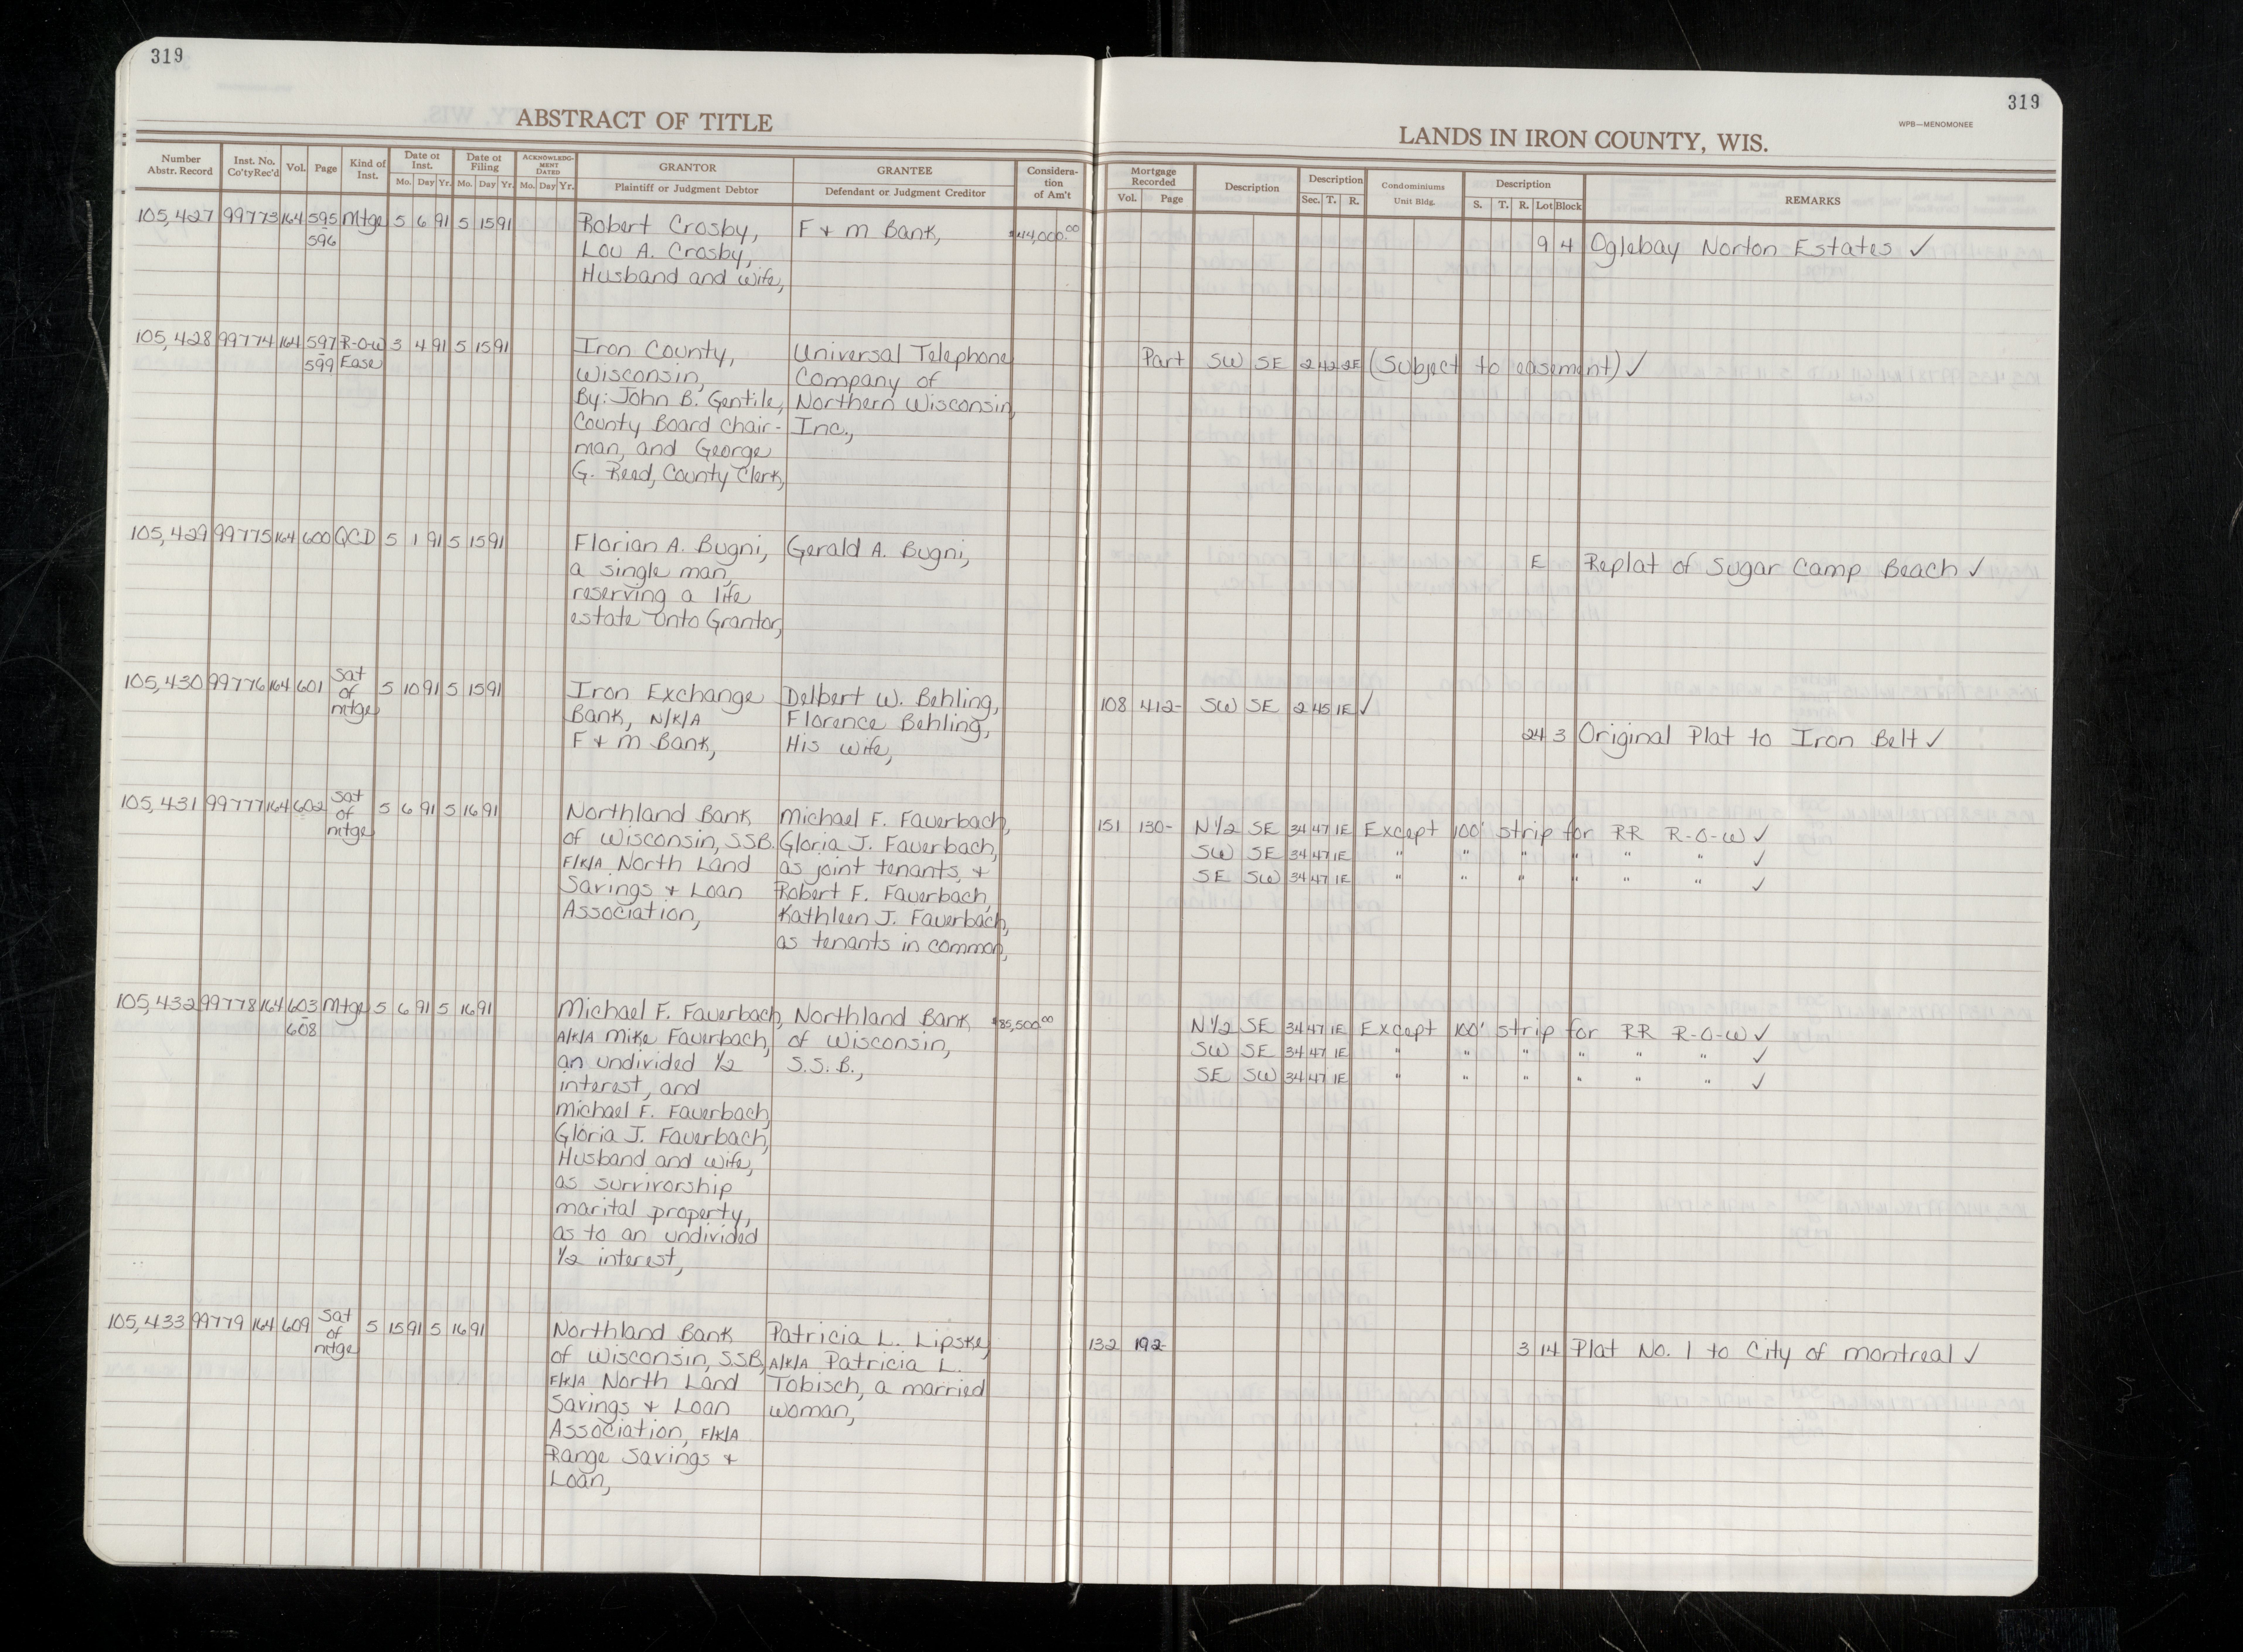 319
319
ABSTRACT OF TITLE
LANDS IN IRON COUNTY, WIS.
WPB—MENOMONEE
Number Abstr. Record | Inst. No. Co'ty Rec'd | Vol. | Page | Kind of Inst. | Date of Inst. Mo. Day Yr. | Date of Filing Mo. Day Yr. | ACKNOWLEDGMENT DATED Mo. Day Yr. | GRANTOR Plaintiff or Judgment Debtor | GRANTEE Defendant or Judgment Creditor | Consideration of Am't | Mortgage Recorded Vol. Page | Description | Description Sec. T. R. | Condominiums Unit Bldg. | Description S. T. R. Lot Block | REMARKS
105,427 99773 164 595 Mtge 5 6 91 5 15 91 Robert Crosby, F + m Bank, $44,000.00 9 4 Oglebay Norton Estates ✓
- 596 Lou A. Crosby,
Husband and Wife,
105,428 99774 164 597 R-O-W 3 4 91 5 15 91 Iron County, Universal Telephone Part SW SE 2 42 2E (Subject to easement) ✓
- 599 Ease Wisconsin, Company of
By: John B. Gentile, Northern Wisconsin,
County Board Chair- Inc.,
man, and George
G. Reed, County Clerk,
105,429 99775 164 600 QCD 5 1 91 5 15 91 Florian A. Bugni, Gerald A. Bugni, E Replat of Sugar Camp Beach ✓
a single man,
reserving a life
estate unto Grantor,
105,430 99776 164 601 Sat of mtge 5 10 91 5 15 91 Iron Exchange Delbert W. Behling, 108 412- SW SE 2 45 1E ✓
Bank, N/K/A Florence Behling, 24 3 Original Plat to Iron Belt ✓
F + m Bank, His Wife,
105,431 99777 164 602 Sat of mtge 5 6 91 5 16 91 Northland Bank Michael F. Fauerbach, 151 130- N1/2 SE 34 47 1E Except 100' strip for RR R-O-W ✓
of Wisconsin, SSB. Gloria J. Fauerbach, SW SE 34 47 1E " " " " " " ✓
F/K/A North Land as joint tenants, + SE SW 34 47 1E " " " " " " ✓
Savings + Loan Robert F. Fauerbach,
Association, Kathleen J. Fauerbach,
as tenants in common,
105,432 99778 164 603 Mtge 5 6 91 5 16 91 Michael F. Fauerbach, Northland Bank $85,500.00 N1/2 SE 34 47 1E Except 100' strip for RR R-O-W ✓
- 608 A/K/A Mike Fauerbach, of Wisconsin, SW SE 34 47 1E " " " " " " ✓
an undivided 1/2 S.S.B., SE SW 34 47 1E " " " " " " ✓
interest, and
michael F. Fauerbach,
Gloria J. Fauerbach,
Husband and Wife,
as survivorship
marital property,
as to an undivided
1/2 interest,
105,433 99779 164 609 Sat of mtge 5 15 91 5 16 91 Northland Bank Patricia L. Lipske, 132 192- 3 14 Plat No. 1 to City of montreal ✓
of Wisconsin, SSB, A/K/A Patricia L.
F/K/A North Land Tobisch, a married
Savings + Loan woman,
Association, F/K/A
Range Savings +
Loan,